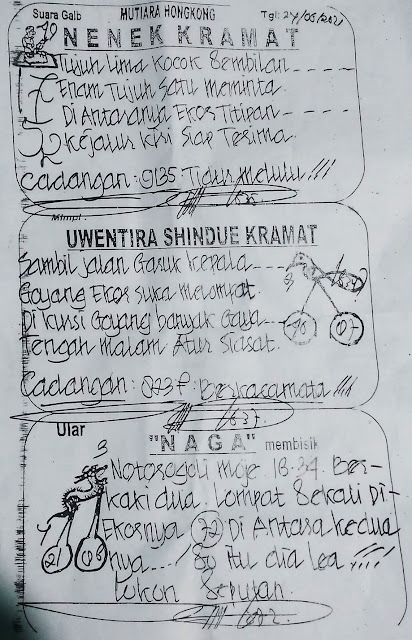 Suara Gaib MUTIARA HONGKONG Tgl: 24/05/2021
NENEK KRAMAT
Tujuh Lima Kocok Sembilan
Enam Tujuh Satu meminta
Di Antaranya Ekor Titipan
Kejalur Kiri Siap Terima
Cadangan: 9135: Tidur melulu !!!
Mimpi :
UWENTIRA SHINDUE KRAMAT
Sambil jalan Garuk Kepala
Goyang Ekor suka melompat
Di Kursi Goyang banyak Gaya
Tengah malam Atur Siasat.
Cadangan: Berkacamata !!!
637.
Ular
"NAGA" membisik
3
18-34. Ber-
kaki dua Lompat Sekali Di-
Ekornya 72 Di Antara kedua
nya
07